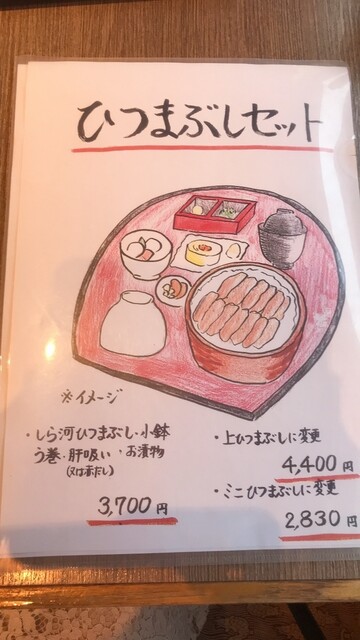 ひつまぶしセット
※イメージ
・しら河ひつまぶし・小鉢
う巻・肝吸い・お漬物
(又は赤だし)
3,700円
・上ひつまぶしに変更
4,400円
・ミニひつまぶしに変更
2,830円